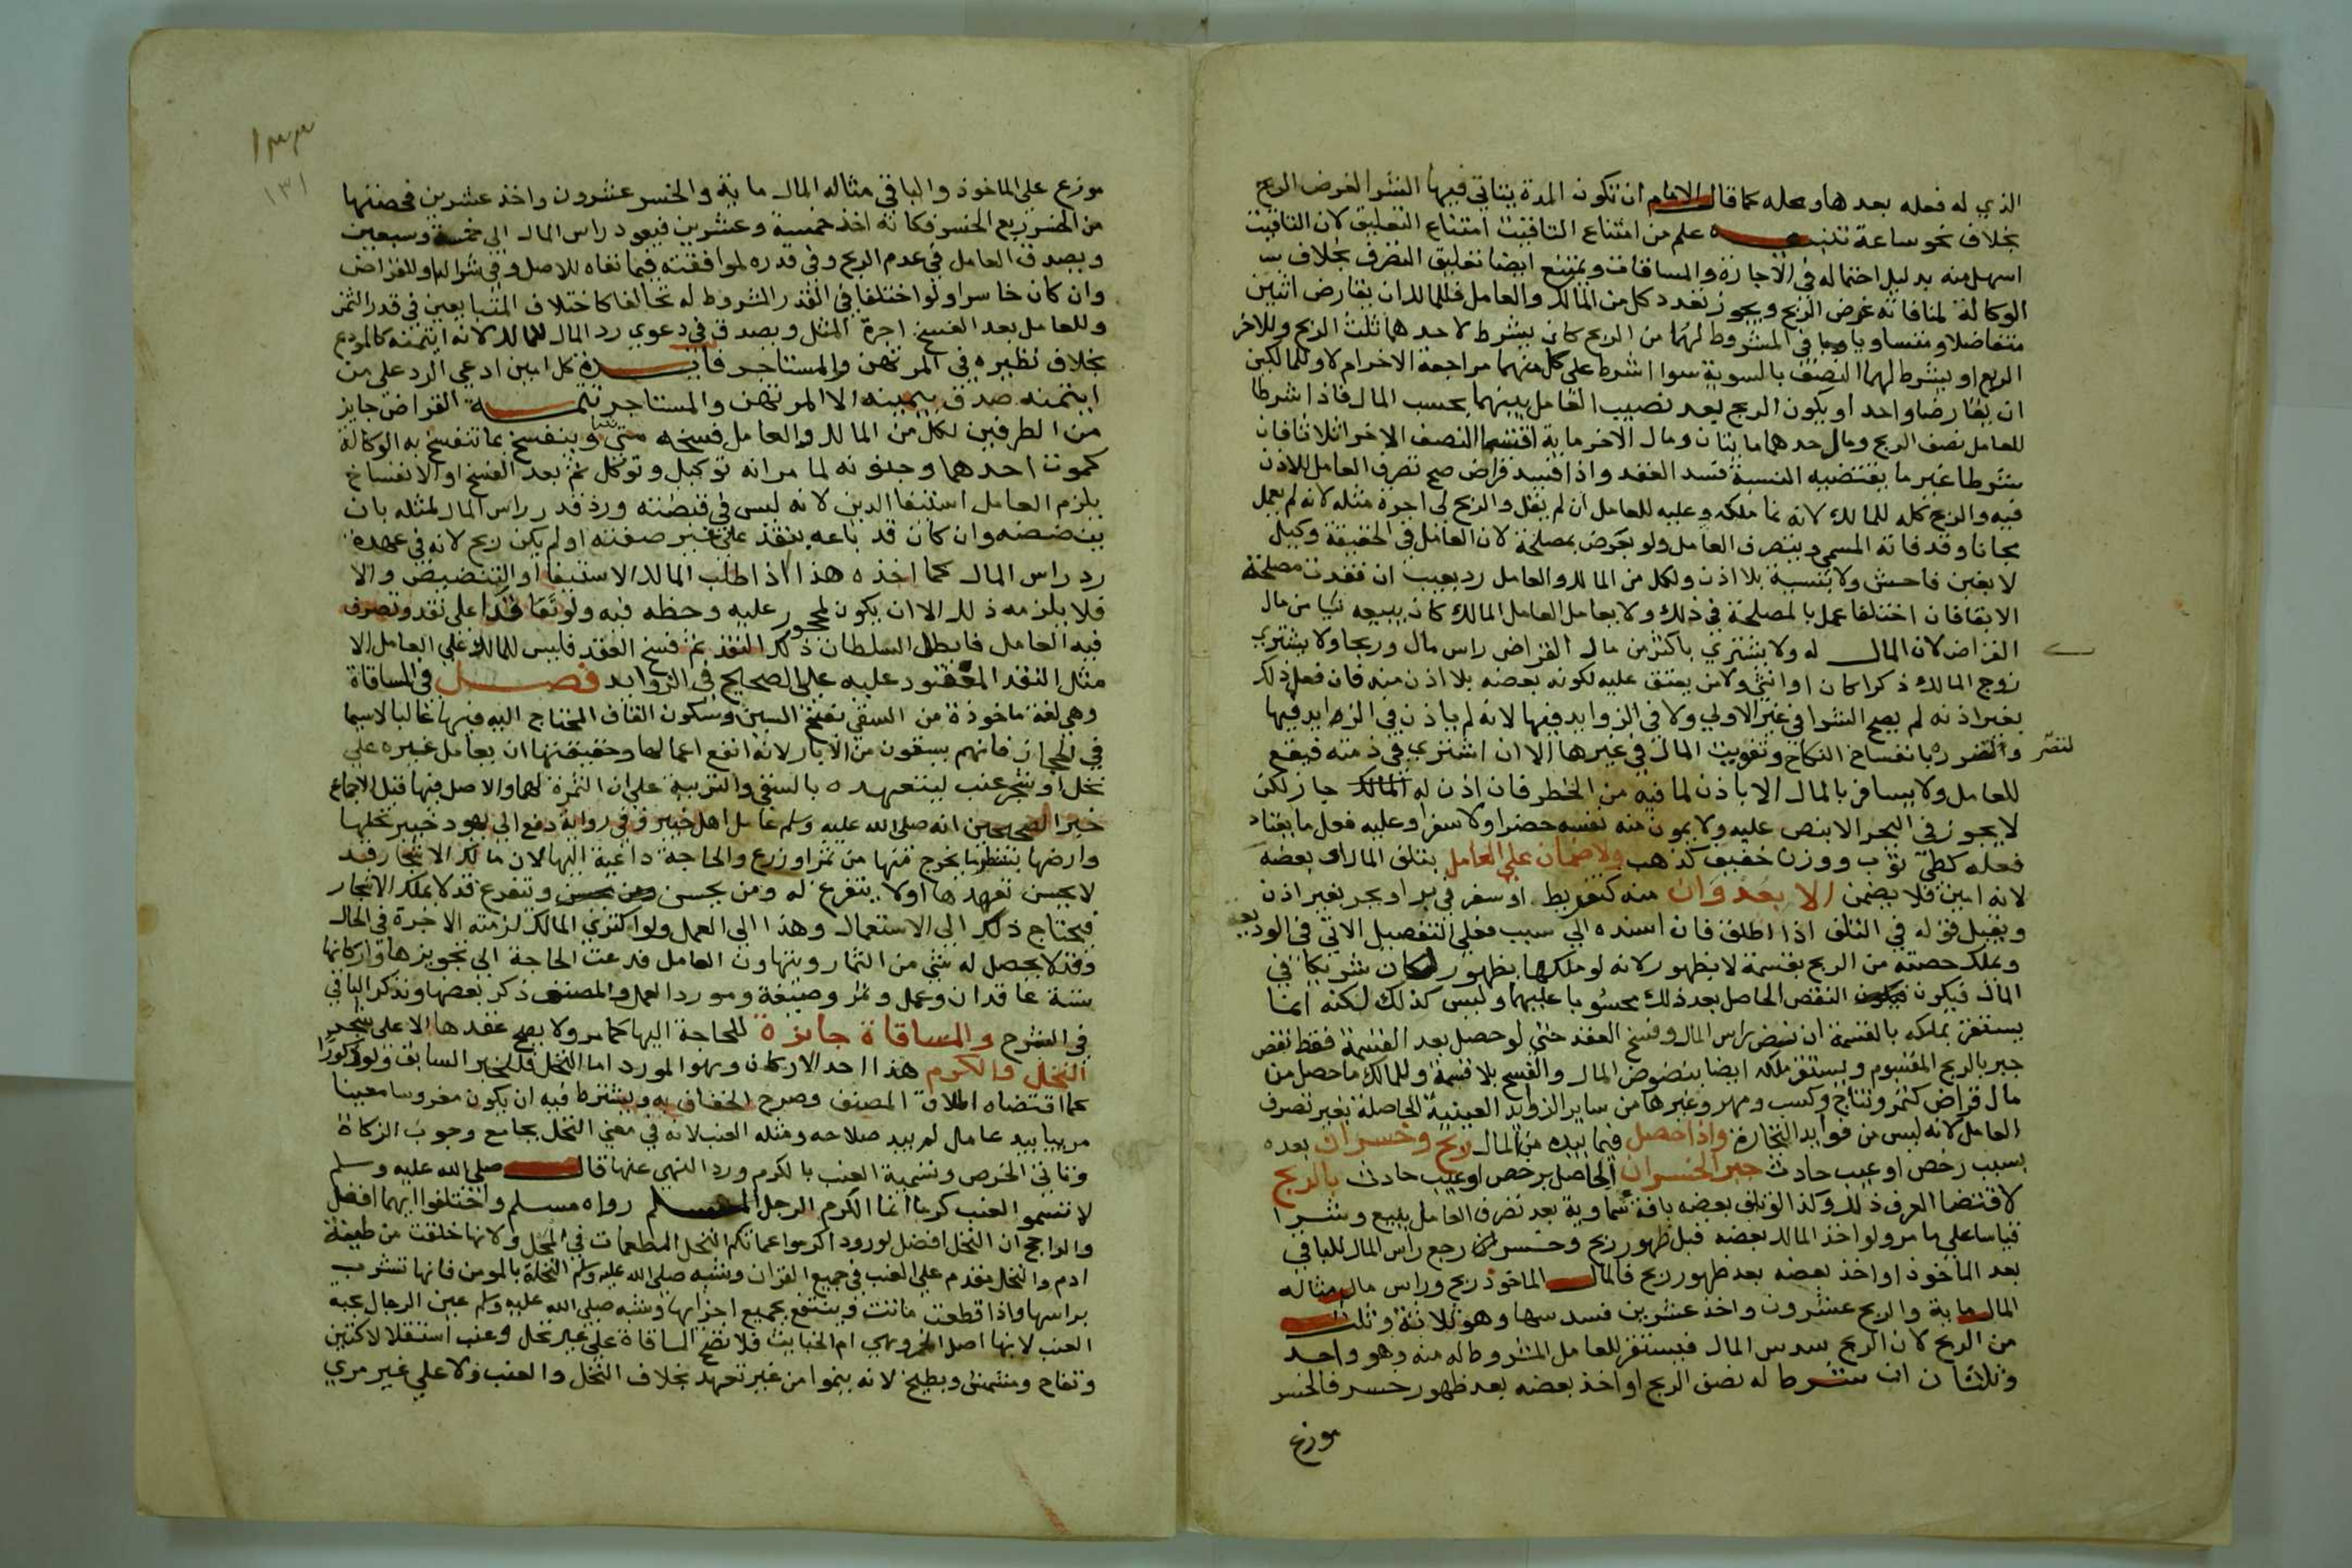 الذي له فعله بعدها ومحله كما قال الامام ان تكون المدة يتاتي فيها الشرا لغرض الربح
بخلاف نحو ساعة تنبيه علم من امتناع التاقيت امتناع التعليق لان التاقيت
اسهل منه بدليل احتماله في الاجازة والمساقات ويمتنع ايضا تعليق التصرف بخلاف
الوكالة لمنافاته غرض الربح ويجوز تعدد كل من المالك والعامل فللمالك ان يقارض اثنين
متفاضلا ومتساويا في المشروط لهما من الربح كان يشرط لاحدهما ثلث الربح وللاخر
الربع او يشرط لهما النصف بالسوية سوا اشرط على كل منهما مراجعة الاخر ام لا وللمالكين
ان يقارضا واحدا ويكون الربح بعد نصيب العامل بينهما بحسب المال فاذا شرطا
للعامل نصف الربح ومال احدهما مايتان ومال الاخر ماية اقتسما النصف الاخر اثلاثا فان
شرطا غير ما يقتضيه النسبة فسد العقد واذا فسد قراض صح تصرف العامل للاذن
فيه والربح كله للمالك لانه نما ملكه وعليه للعامل ان لم يقل والربح لي اجرة مثله لانه لم يعمل
مجانا وقد فاته المسمي ويتصرف العامل ولو بعرض بمصلحة لان العامل في الحقيقة وكيل
لا بغبن فاحش ولا بنسية بلا اذن ولكل من المالك والعامل رد بعيب ان فقدت مصلحة
الابقا فان اختلفا عمل بالمصلحة في ذلك ولا يعامل العامل المالك كان يبيعه شيا من مال
القراض لان المال له ولا يشتري باكثر من مال القراض راس مال وربحا ولا يشتري
زوج المالك ذكرا كان او انثي ولا من يعتق عليه لكونه بعضه بلا اذن منه فان فعل ذلك
بغير اذنه لم يصح الشرا في غير الاولي ولا في الزوايد فيها لانه لم ياذن في الزوايد فيها
لتضر والتضرره بانفساخ النكاح وتفويت المال في غيرها الا ان اشتري في ذمته فيقع
للعامل ولا يسافر بالمال الا باذن لما فيه من الخطر فان اذن له المالك جاز لكن
لا يجوز في البحر الا بنص عليه ولا يمون منه نفسه حضرا ولا سفرا وعليه فعل ما يعتاد
فعله كطي ثوب ووزن خفيف كذهب ولا ضمان علي العامل بتلف المال او بعضه
لانه امين فلا يضمن الا بعدوان منه كتفريط او سفر في بر او بحر بغير اذن
ويقبل قوله في التلف اذا اطلق فان اسنده الي سبب فعلي التفصيل الاتي في الوديعة
ويملك حصته من الربح بقسمة لا بظهور لانه لو ملكها بظهور لكان شريكا في
المال فيكون النقص الحاصل بعد ذلك محسوبا عليهما وليس كذلك لكنه انما
يستقر بملكه بالقسمة ان نض راس المال وفسخ العقد حتي لو حصل بعد القسمة فقط نقص
جبر بالربح المقسوم ويستقر ملكه ايضا بنضوض المال والفسخ بلا قسمة وللمالك ما حصل من
مال قراض كثمر ونتاج وكسب ومهر وغيرها من ساير الزوايد العينية الحاصلة بغير تصرف
العامل لانه ليس من فوايد التجارة واذا حصل فيما بيده من المال ربح وخسران بعده
بسبب رخص او عيب حادث جبر الخسران الحاصل برخص او عيب حادث بالربح
لاقتضا العرف ذلك وكذا لو تلف بعضه بافة سماوية بعد تصرف العامل ببيع وشرا
قياسا علي ما مر ولو اخذ المالك بعضه قبل ظهور ربح وخسران رجع راس المال للباقي
بعد الماخوذ او اخذ بعضه بعد ظهور ربح فالمال الماخوذ ربح وراس مال مثاله
المال ماية والربح عشرون واخذ عشرين فسدسها وهو ثلاثة وثلث
من الربح لان الربح سدس المال فيستقر للعامل المشروط له منه وهو واحد
وثلثان ان شرط له نصف الربح او اخذ بعضه بعد ظهور خسر فالخسر
موزع
١٣٣
١٣١
موزع على الماخوذ والباقي مثاله المال ماية والخسر عشرون واخذ عشرين فحصتها
من الخسر ربع الخسر فكانه اخذ خمسة وعشرين فيعود راس المال الي خمسة وسبعين
ويصدق العامل في عدم الربح وفي قدره لموافقته فيما نفاه للاصل وفي شرا له او للقراض
وان كان خاسرا ولو اختلفا في القدر المشروط له تحالفا كاختلاف المتبايعين في قدر الثمن
وللعامل بعد الفسخ اجرة المثل ويصدق في دعوي رد المال للمالك لانه ايتمنه كالمودع
بخلاف نظيره في المرتهن والمستاجر فايدة كل امين ادعي الرد علي من
ايتمنه صدق بيمينه الا المرتهن والمستاجر تتمة القراض جايز
من الطرفين لكل من المالك والعامل فسخه متي شا وينفسخ بما تنفسخ به الوكالة
كموت احدهما وجنونه لما مر انه توكيل وتوكل ثم بعد الفسخ او الانفساخ
يلزم العامل استيفا الدين لانه ليس في قبضته ورد قدر راس المال لمثله بان
ينضضه وان كان قد باعه بنقد علي غير صفته او لم يكن ربح لانه في عهدة
رد راس المال كما اخذه هذا اذا طلب المالك الاستيفا او التنضيض والا
فلا يلزمه ذلك الا ان يكون لمحجور عليه وحظه فيه ولو تعاقدا على نقد وتصرف
فيه العامل فابطل السلطان ذلك النقد ثم فسخ العقد فليس للمالك علي العامل الا
مثل النقد المعقود عليه علي الصحيح في الزوايد فصل في المساقاة
وهي لغة ماخوذة من السقي بفتح السين وسكون القاف المحتاج اليه فيها غالبا لاسيما
في الحجاز فانهم يسقون من الابار لانه انفع اعمالها وحقيقتها ان يعامل غيره علي
نخل او شجر عنب ليتعهده بالسقي والتربية علي ان الثمرة لهما والاصل فيها قبل الاجماع
خبر الصحيحين انه صلى الله عليه وسلم عامل اهل خيبر وفي رواية دفع الي يهود خيبر نخلها
وارضها بشطر ما يخرج منها من ثمر او زرع والحاجة داعية اليها لان مالك الاشجار قد
لا يحسن تعهدها او لا يتفرغ له ومن يحسن ويتفرغ قد لا يملك الاشجار
فيحتاج ذلك الى الاستعمال وهذا الي العمل ولو اكتري المالك لزمته الاجرة في الحال
وقد لا يحصل له شي من الثمار ويتهاون العامل فدعت الحاجة الي تجويزها واركانها
ستة عاقدان وعمل وثمر وصيغة ومورد العمل والمصنف ذكر بعضها ونذكر الباقي
في الشرح والمساقاة جائزة للحاجة اليها كما مر ولا يصح عقدها الا على شجر
النخل والكرم هذا احد الاركان وهو المورد اما النخل فللخبر السابق ولو ذكورا
كما اقتضاه اطلاق المصنف وصرح الخفاف به ويشترط فيه ان يكون مغروسا معينا
مرييا بيد عامل لم يبد صلاحه ومثله العنب لانه في معني النخل بجامع وجوب الزكاة
وتاتي الخرص وتسمية العنب بالكرم ورد النهي عنها قال صلى الله عليه وسلم
لا تسموا العنب كرما انما الكرم الرجل المسلم رواه مسلم واختلفوا ايهما افضل
والراجح ان النخل افضل لورود اكرموا عماتكم النخل المطعمات في المحل ولانها خلقت من طينة
ادم والنخل مقدم علي العنب في جميع القران وشبه صلى الله عليه وسلم النخلة بالمومن فانها تشرب
براسها واذا قطعت ماتت وينتفع بجميع اجزايها وشبه صلى الله عليه وسلم عين الرجال بحبة
العنب لانها اصل الخمر وهي ام الخبايث فلا تصح المساقاة على غير نخل وعنب استقلالا كتين
وتفاح ومشمش وبطيخ لانه ينموا من غير تعهد بخلاف النخل والعنب ولا علي غير مري